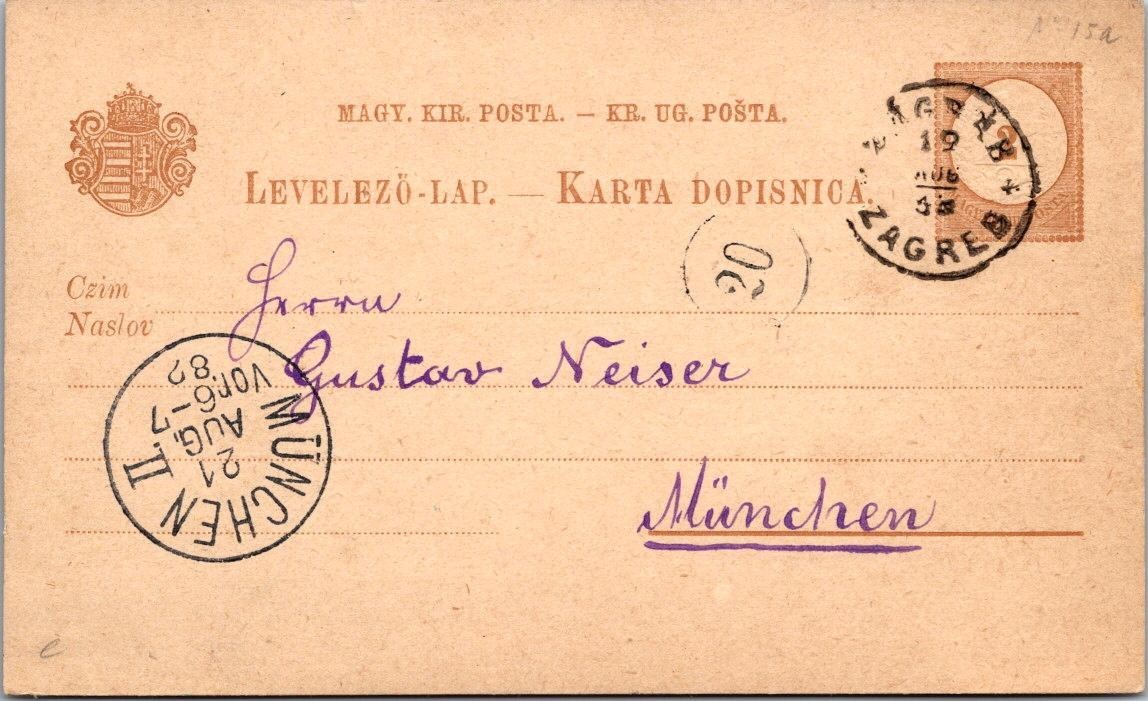 Nº 15a
MAGY. KIR. POSTA. — KR. UG. POŠTA.
LEVELEZÖ-LAP. — KARTA DOPISNICA.
2
ZÁGRÁB
19
AUG
ZAGREB
20
Czim
Naslov
Herrn
Gustav Neiser
München
MÜNCHEN II.
21
AUG.
6-7
Vor.
82
e